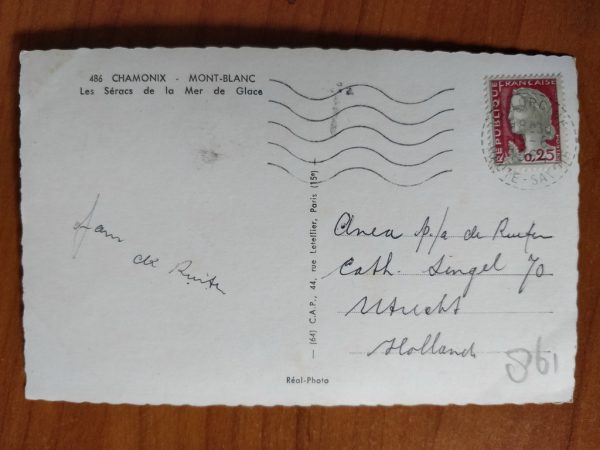 486 CHAMONIX - MONT-BLANC
Les Séracs de la Mer de Glace
RÉPUBLIQUE FRANÇAISE
0,25
HTE-SAVOIE
Jan de Ruiter
(64) C.A.P., 44, rue Letellier, Paris (15e)
p/a de Ruiter
Cath. Singel 70
Utrecht
Holland
Réal-Photo